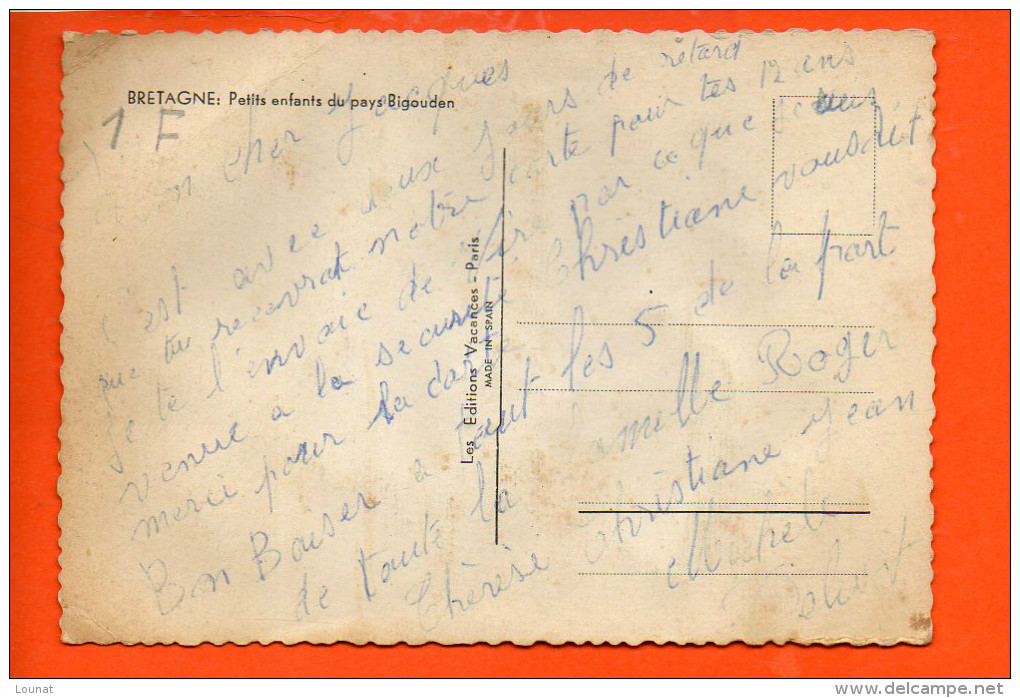 BRETAGNE: Petits enfants du pays Bigouden
1 F
Mon cher Jacques
c'est avec deux jours de retard
que tu recevrat notre carte pour tes 12 ans
je te l'envoie de Vire par ce que je suis
venue a la securité Christiane vous dit
merci pour la carte
Bon Baiser a tout les 5 de la part
de toute la famille Roger
Thérèse Christiane Jean
Michele
Les Editions Vacances - Paris
MADE IN SPAIN
Lounat
www.delcampe.net